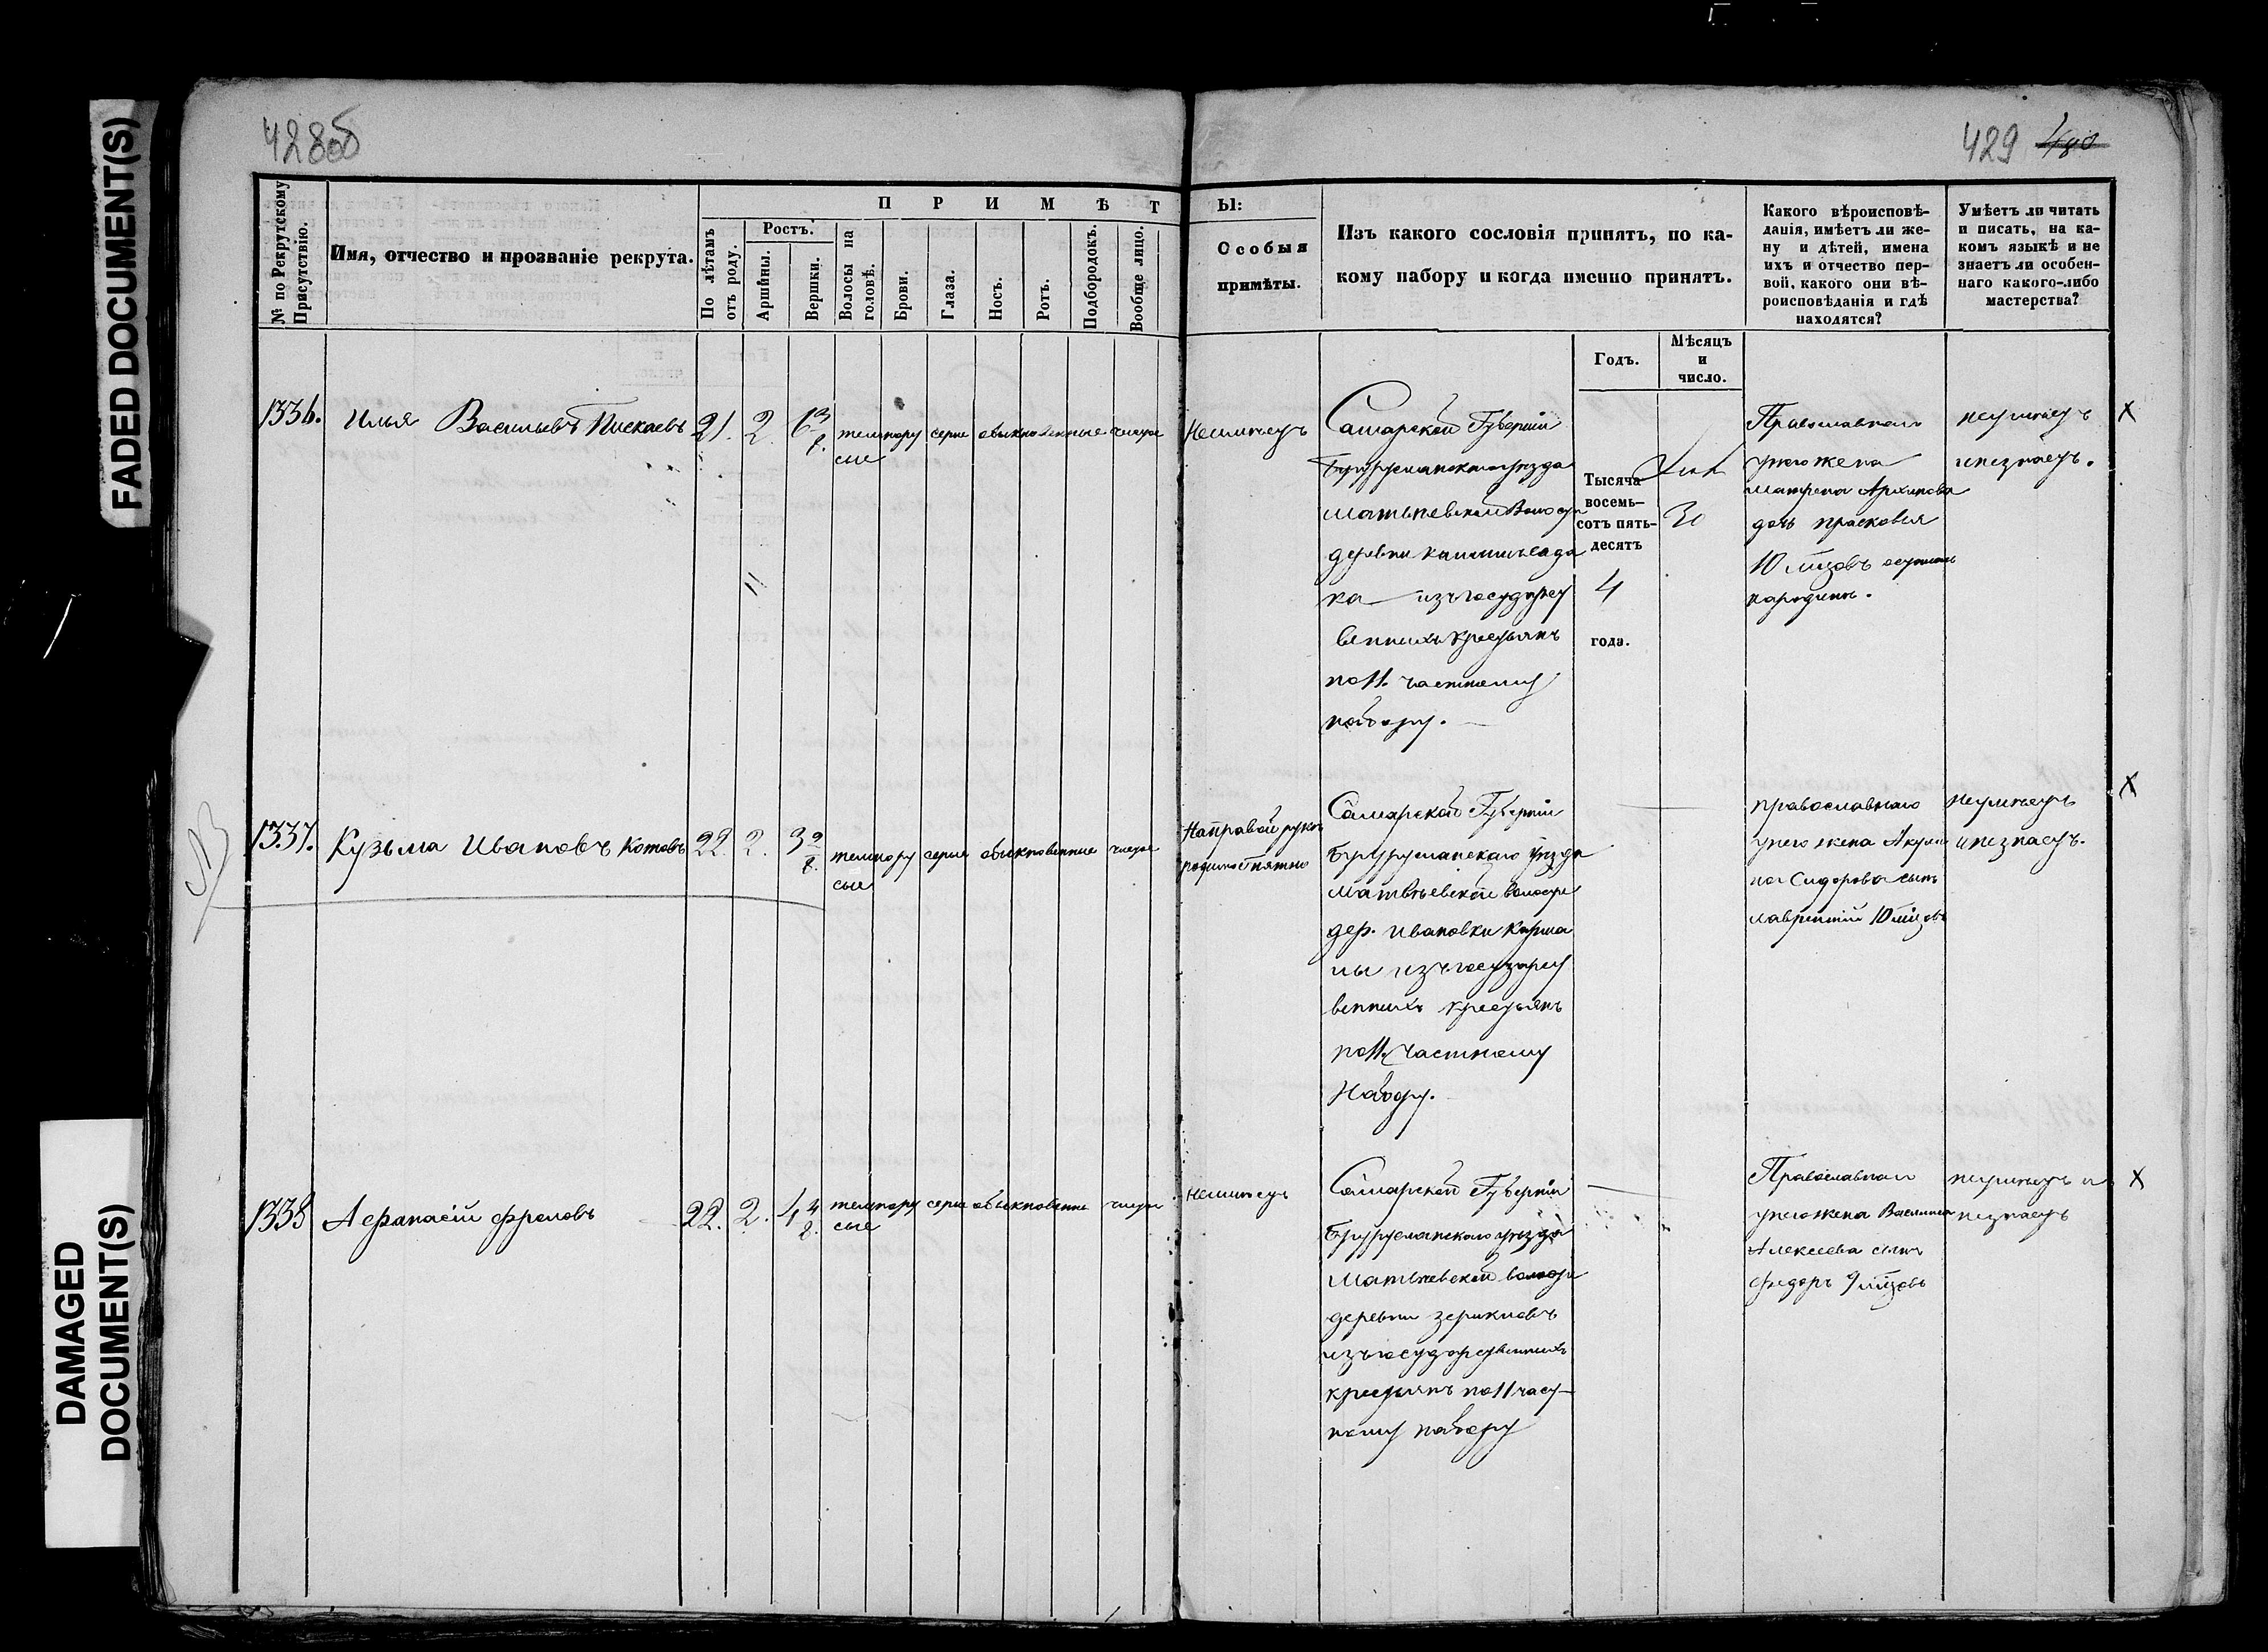 FADED DOCUMENT(S)
DAMAGED
DOCUMENT(S)
428об
429 480
№ по Рекрутскому
Присутствію.
Имя, отчество и прозваніе рекрута.
П Р И М Ѣ Т
Ы:
По лѣтамъ
отъ роду.
Ростъ.
Аршины.
Вершки.
Волосы на
головѣ.
Брови.
Глаза.
Носъ.
Ротъ.
Подбородокъ.
Вообще лицо.
Особыя
примѣты.
Изъ какого сословія принятъ, по ка-
кому набору и когда именно принятъ.
Годъ.
Мѣсяцъ
и
число.
Какого вѣроисповѣ-
данія, имѣетъ ли же-
ну и дѣтей, имена
ихъ и отчество пер-
вой, какого они вѣ-
роисповѣданія и гдѣ
находятся?
Умѣетъ ли читать
и писать, на ка-
комъ языкѣ и не
знаетъ ли особен-
наго какого-либо
мастерства?
1336. Илья Васильевъ Пискаевъ 21. 2. 6 3/8. темнору серые обыкновенные чистое
сые
Неимѣетъ
Самарской Губерніи
Бугурусланскаго уѣзда
Матвѣевской Волости
деревни
ка изъ государст
венныхъ крестьянъ
по 11. частному
набору.
Тысяча
восемь-
сотъ пять-
десятъ
4
года.
30
Православнаго
у него жена
Матрена Архипова
дочь Прасковья
10 мцовъ
на родинѣ.
неумѣетъ
и незнаетъ.
X
1337. Кузьма Ивановъ Котовъ 22. 2. 3 2/8. темнору серые обыкновенные чистое
сые
На правой рукѣ
родимое пятно
Самарской Губерніи
Бугурусланскаго уѣзда
Матвѣевской волости
дер. Ивановки Карма
лы изъ государст
венныхъ крестьянъ
по 11. частному
Набору.
православнаго
у него жена Акули
на Сидорова сынъ
Лаврентій 10 мцовъ
неумѣетъ
и незнаетъ.
X
1338 Афанасій Фроловъ 22. 2. 4 4/8. темнору серые обыкновенные чистое
сые
Неимѣетъ
Самарской Губерніи
Бугурусланскаго уѣзда
Матвѣевской волости
деревни Зериклов
изъ государственныхъ
крестьянъ по 11 част-
ному набору
Православнаго
у него жена Василиса
Алексеева сынъ
Федоръ 9 мцовъ
неумѣетъ и
незнаетъ
X